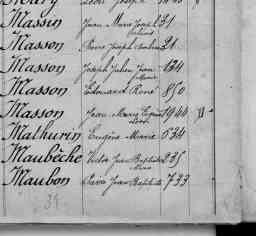 Massin Jean Marie José 131
Masson Pierre Joseph 21
Masson Joseph Julien Jean 134
Marie
Masson Edouard René 850
Masson Jean Marie 1944
Léon
Mathurin Eugène Marie 534
Maubèche Victor Jean Baptiste 235
Maubon Pierre Jean Baptiste 733